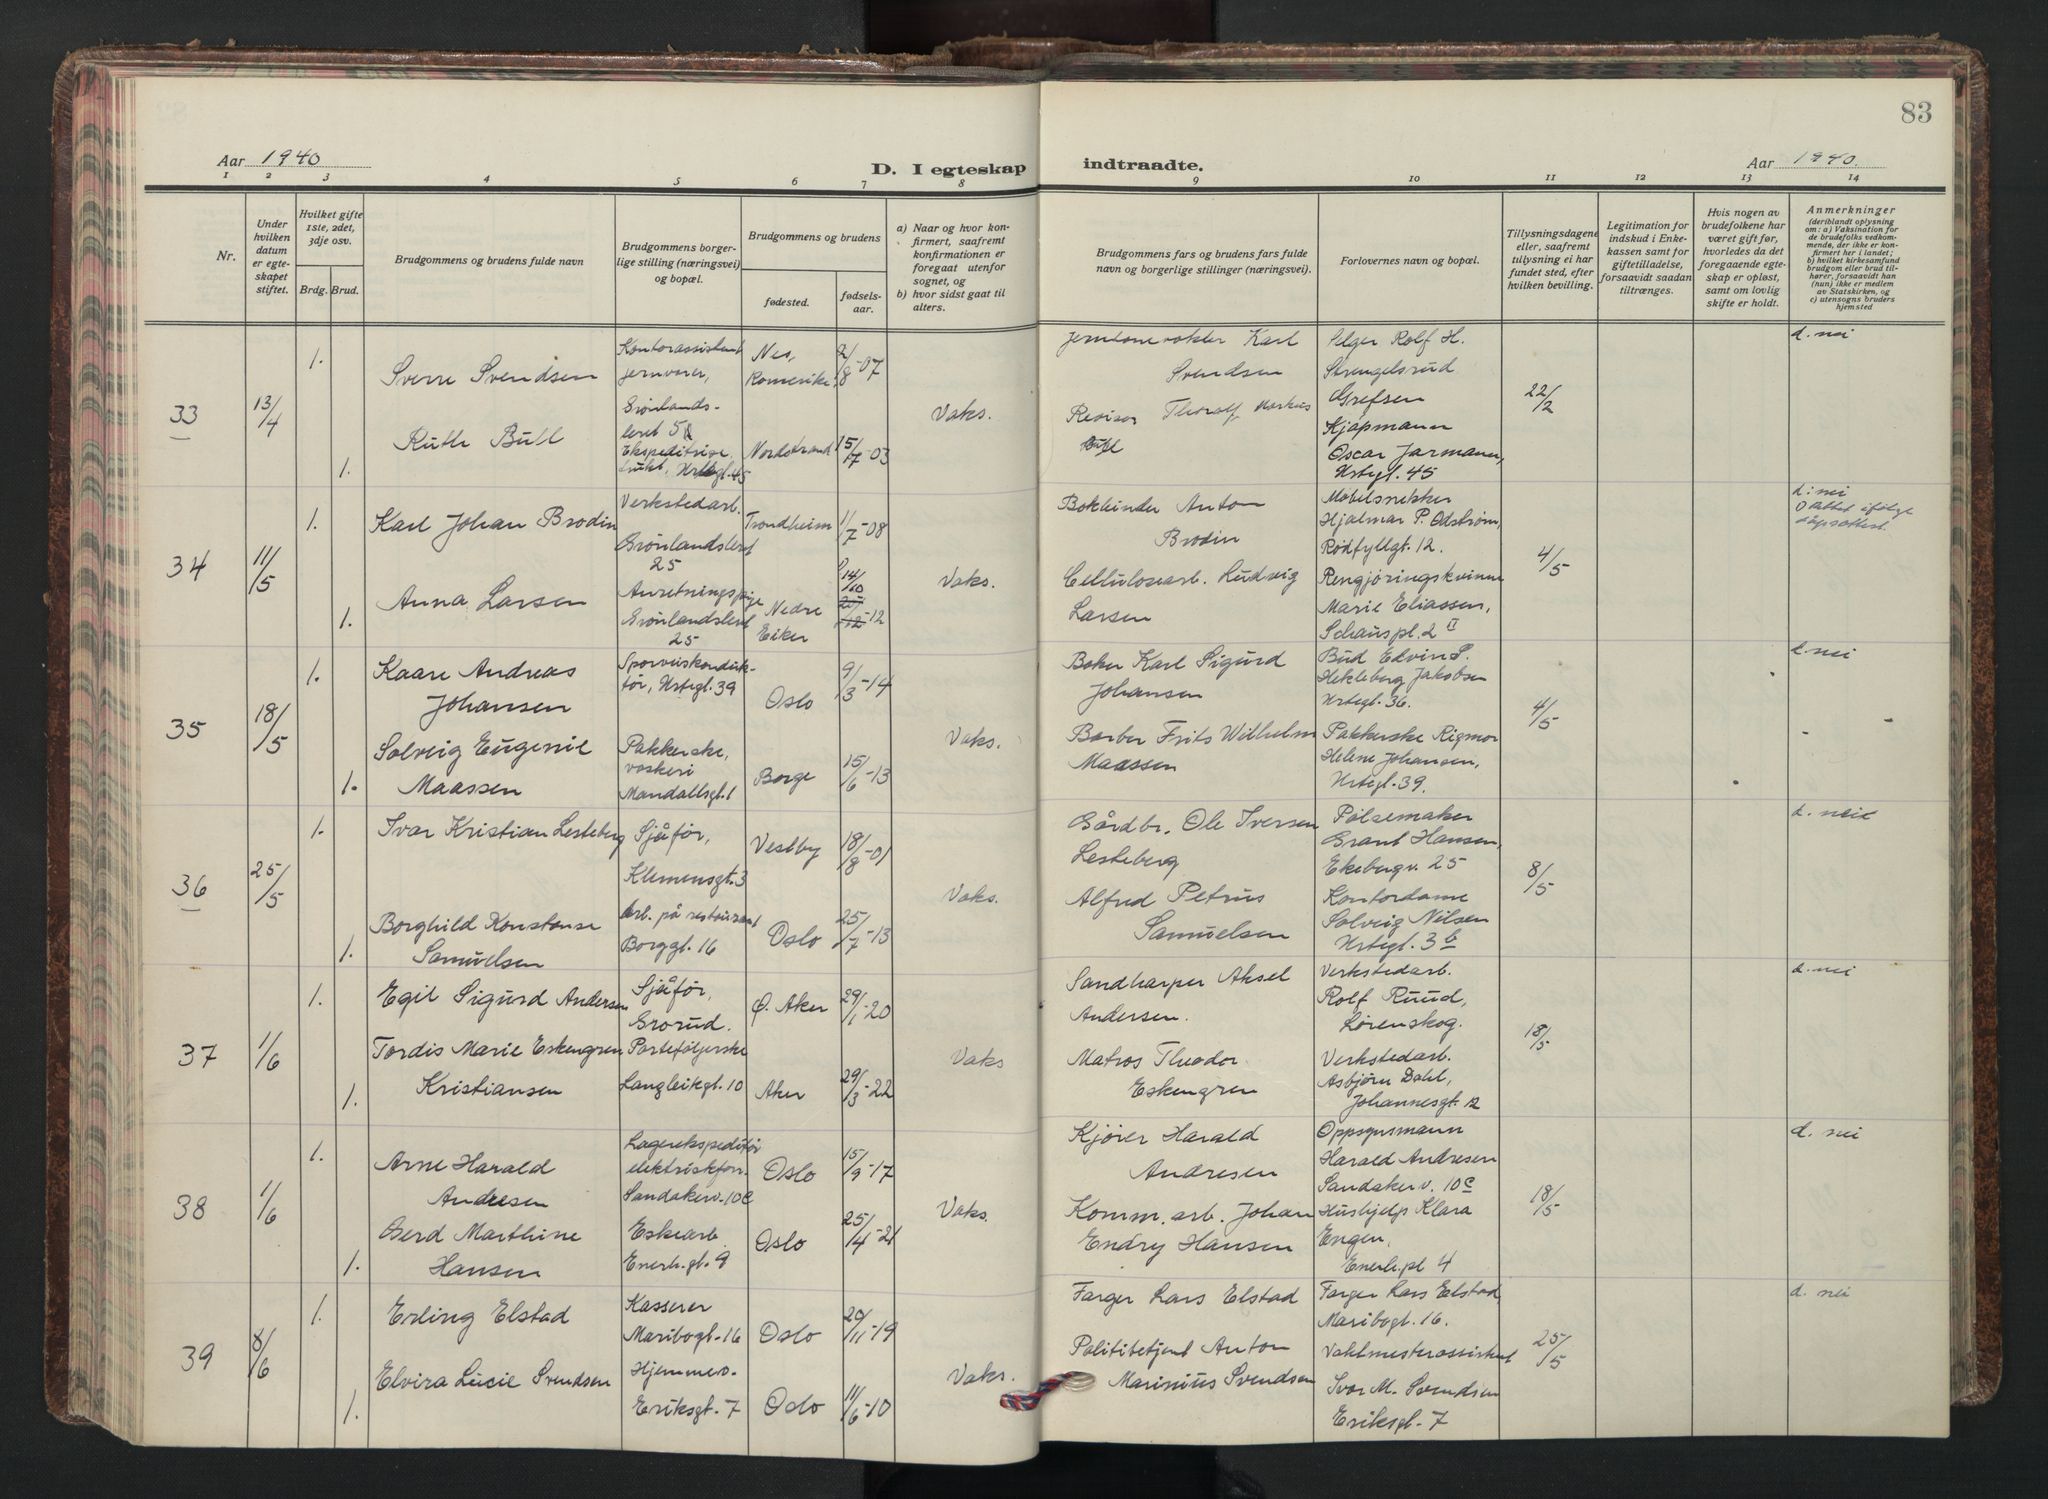 83
Aar 1940
D. I egteskap indtraadte.
Aar 1940.
1 2 3 4 5 6 7 8 9 10 11 12 13 14
Nr.
Under hvilken datum er egteskapet stiftet.
Hvilket gifte 1ste, 2det, 3dje osv.
Brdg. Brud.
Brudgommens og brudens fulde navn
Brudgommens borgerlige stilling (næringsvei) og bopæl.
Brudgommens og brudens
fødested.
fødselsaar.
a) Naar og hvor konfirmert, saafremt konfirmationen er foregaat utenfor sognet, og
b) hvor sidst gaat til alters.
Brudgommens fars og brudens fars fulde navn og borgerlige stillinger (næringsvei).
Forlovernes navn og bopæl.
Tillysningsdagene eller, saafremt tillysning ei har fundet sted, efter hvilken bevilling.
Legitimation for indskud i Enkekassen samt for giftetilladelse, forsaavidt saadan tiltrænges.
Hvis nogen av brudefolkene har været gift før, hvorledes da det foregaaende egteskap er opløst, samt om lovlig skifte er holdt.
Anmerkninger
(deriblandt oplysning om: a) Vaksination for de brudefolks vedkommende, der ikke er konfirmert her i landet;
b) hvilket kirkesamfund brudgom eller brud tilhører, forsaavidt han (hun) ikke er medlem av Statskirken, og
c) utensogns bruders hjemsted
33
13/4
1.
Sverre Svendsen
Kontorassistent
jernvarer,
Grønlands-
leret
Nes,
Romerike.
2/8-07
1.
Ruth Bull
Nordstrand
15/7-03
Vaks.
Karl
Svendsen
Revisor Thoralf Markus
Bull
Selger Rolf H.
Strengelsrud
Grefsen
Kjøpmann
Oscar Jarmann,
Urtegt. 45
22/2
d. nei
34
11/5
1.
Karl Johan Brodin
Verkstedarb.
Grønlandsleret
25
Trondheim
1/7-08
1.
Anna Larsen
Anretningspige
Grønlandsleret
25
Nedre
Eiker
14/10
-12
Vaks.
Bokbinder Anton
Brodin
Cellulosearb. Ludvig
Larsen
Møbelsnekker
Hjalmar P. Odstrøm,
Rødfyllgt. 12.
Rengjøringskvinne
Marie Eliassen,
Schouspl. 2 II
4/5
d: nei
35
18/5
1.
Kaare Andreas
Johansen
Sporveiskonduk-
tør, Urtegt. 39
Oslo
9/3-14
1.
Solveig Eugenie
Maassen
Pakkerske,
vaskeri
Mandallsgt. 1
Borge
15/6-13
Vaks.
Baker Karl Sigurd
Johansen
Barber Frits Wilhelm
Maassen
Bud Edvin S.
Hekleberg Jakobsen
Urtegt. 36.
Pakkerske Rigmor
Helene Johansen,
Urtegt. 39.
4/5
d. nei
36
25/5
1.
Ivar Kristian Lesteberg
Sjåfør,
Klemensgt. 3
Vestby
18/8-01
1.
Borghild Konstanse
Samuelsen
Arb. på restaurant
Borggt. 16
Oslo
25/7-13
Vaks.
Gårdbr. Ole Iversen
Lesteberg
Alfred Petrus
Samuelsen
Pølsemaker
Grant Hansen,
Ekebergv. 25
Kontordame
Solveig Nilsen
Urtegt. 3b
8/5
d. nei
37
1/6
1.
Egil Sigurd Andersen
Sjåfør,
Grorud.
Ø. Aker
29/1-20
1.
Tordis Marie Eskengren
Kristiansen
Porteføljerske
Langleikgt. 10
Aker
29/3-22
Vaks
Sandharper Aksel
Andersen.
Matros Theodor
Eskengren
Verkstedarb.
Rolf Ruud,
Lørenskog.
Verkstedarb.
Asbjørn Dahl,
Johannesgt. 12
18/5
d. nei
38
1/6
1.
Arne Harald
Andresen
Lagerekspeditør
elektriskforr.
Sandakerv. 10c
Oslo
15/9-17
1.
Gerd Marthine
Hansen
Eskearb.
Enerh.gt. 9
Oslo
25/4-21
Vaks.
Kjører Harald
Andresen
Komm. arb. Johan
Endry Hansen
Oppsynsmann
Harald Andresen
Sandaker v. 10c
Hushjelp Klara
Engen,
Enerh.pl 4
18/5
d. nei
39
8/6
1.
Erling Elstad
Kasserer
Maribogt. 16
Oslo
20/11-19
1.
Elvira Lucie Svendsen
Hjemmev.
Eriksgt. 7
Oslo
11/6-10
Vaks.
Farger Lars Elstad
Polititetjent Anton
Marinius Svendsen
Farger Lars Elstad,
Maribogt. 16.
Vaktmesterassistent
Ivar M. Svendsen
Eriksgt. 7
25/5
d. nei